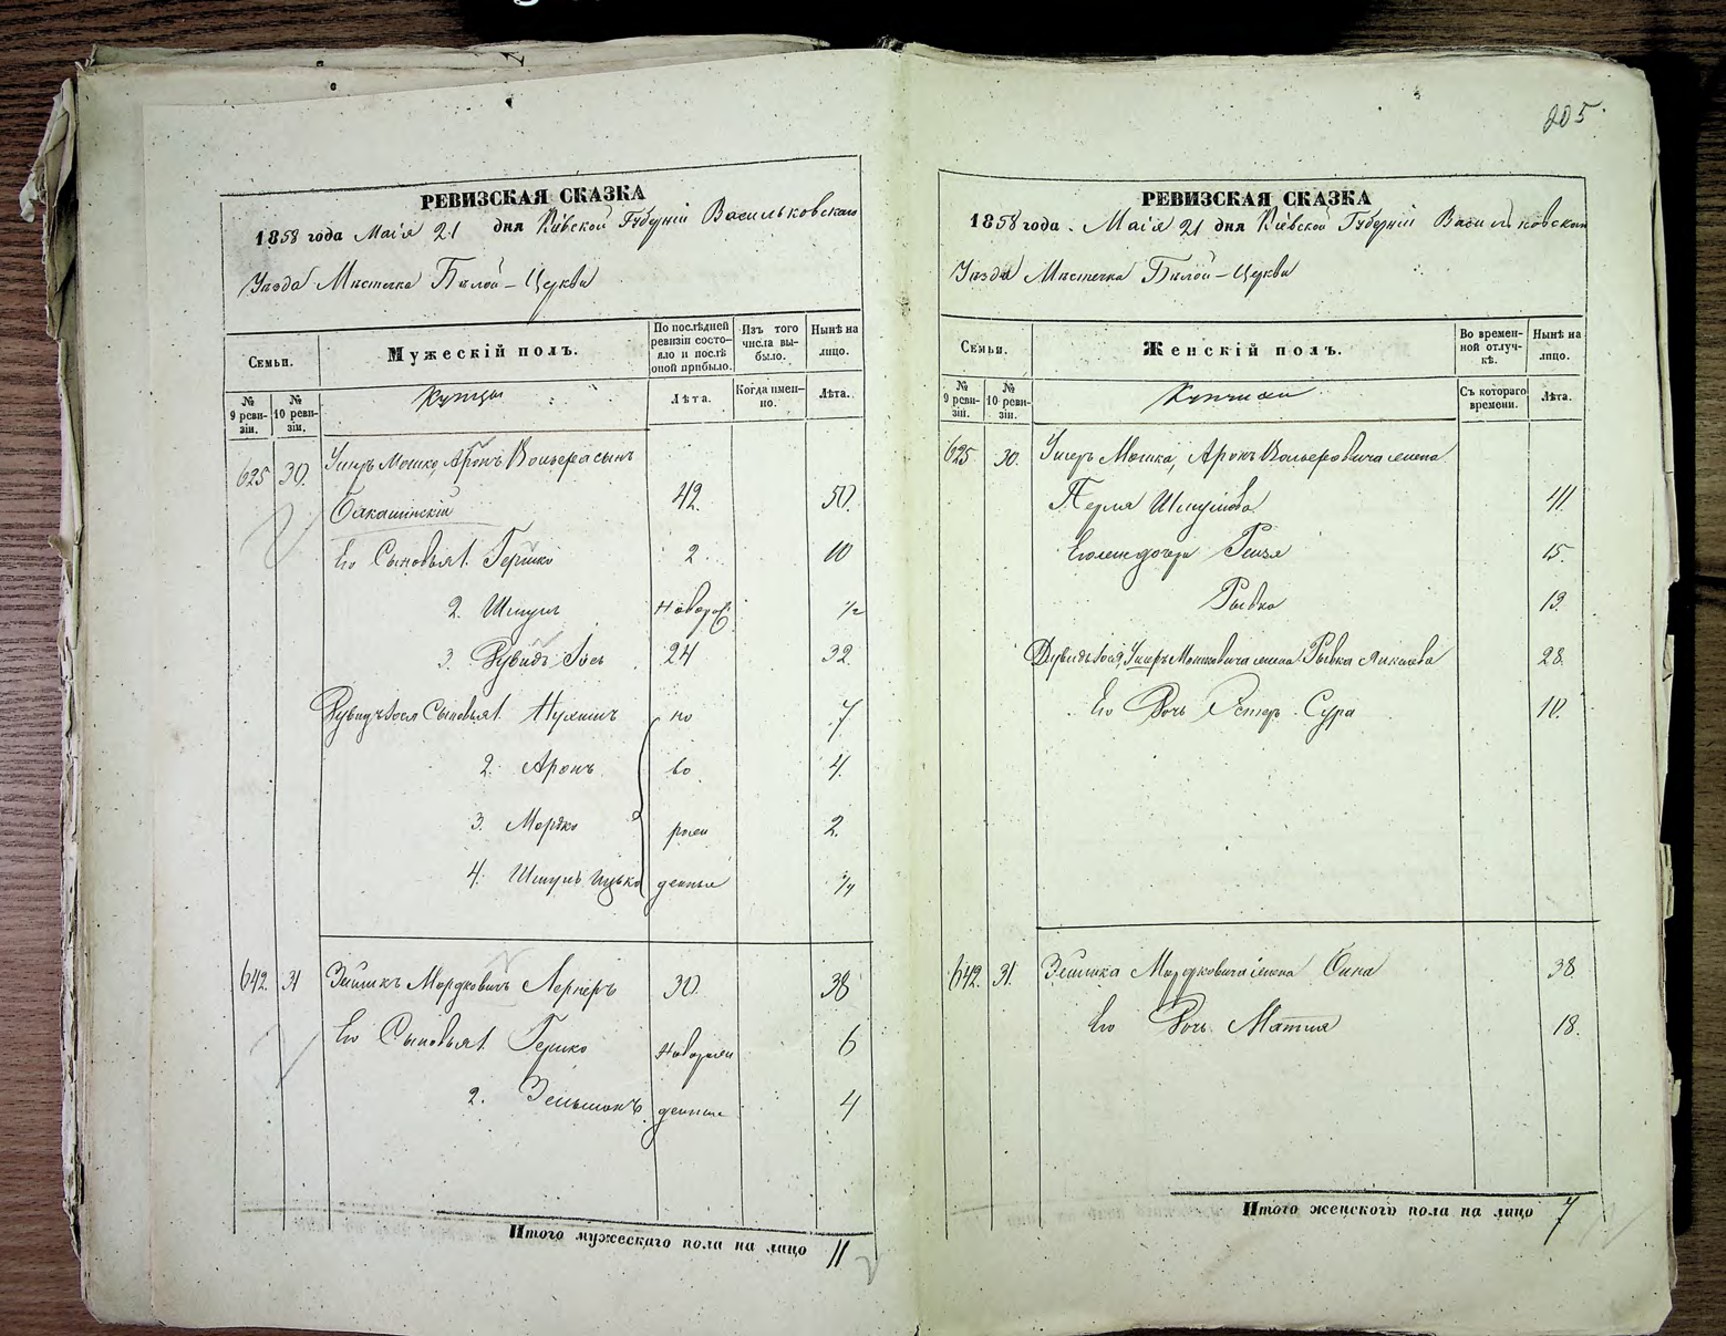 205.
РЕВИЗСКАЯ СКАЗКА
1858 года Маія 21 дня Кіевской Губерніи Васильковскаго
Уѣзда Мѣстечка Бѣлой-Церкви
Семьи.
Мужескій полъ.
По послѣдней ревизіи состояло и послѣ оной прибыло.
Изъ того числа выбыло.
Нынѣ на лицо.
№ 9 ревизіи.
№ 10 ревизіи.
Купцы
Лѣта.
Когда именно.
Лѣта.
625 30. Умеръ Мошко, Аронъ Вольфа сынъ
42. 50.
Его Сыновья 1. Гершко 2. 10
2. Шмуль Новорож 1/2
3. Дувидъ Іось 24 32.
Дувидъ Іося Сыновья 1. Нухимъ но 7
2. Аронъ во 4.
3. Мордко рож 2.
4. Шмуль Ицько денные 1/4
642. 31 Зейликъ Мордковичъ Лернеръ 30 38
Его Сыновья 1. Гершко Новорож 6
2. Зельманъ денные 4
Итого мужескаго пола на лицо 11
РЕВИЗСКАЯ СКАЗКА
1858 года. Маія 21 дня Кіевской Губерніи Васильковскаго
Уѣзда Мѣстечка Бѣлой-Церкви
Семьи.
Женскій полъ.
Во временной отлучкѣ.
Нынѣ на лицо.
№ 9 ревизіи.
№ 10 ревизіи.
Съ котораго времени.
Лѣта.
625 30. Умеръ Мошка, Аронъ Вольфовича жена
Перля Шмулова 41.
дочери Рейзя 15.
Рывка 13.
Дувидъ Іося, Умеръ Мошковича жена Рывка Янкелева 28.
Его Дочь Эстеръ Сура 10.
642. 31. Зейлика Мордковича жена 38
Его Дочь 18.
Итого женскаго пола на лицо 7